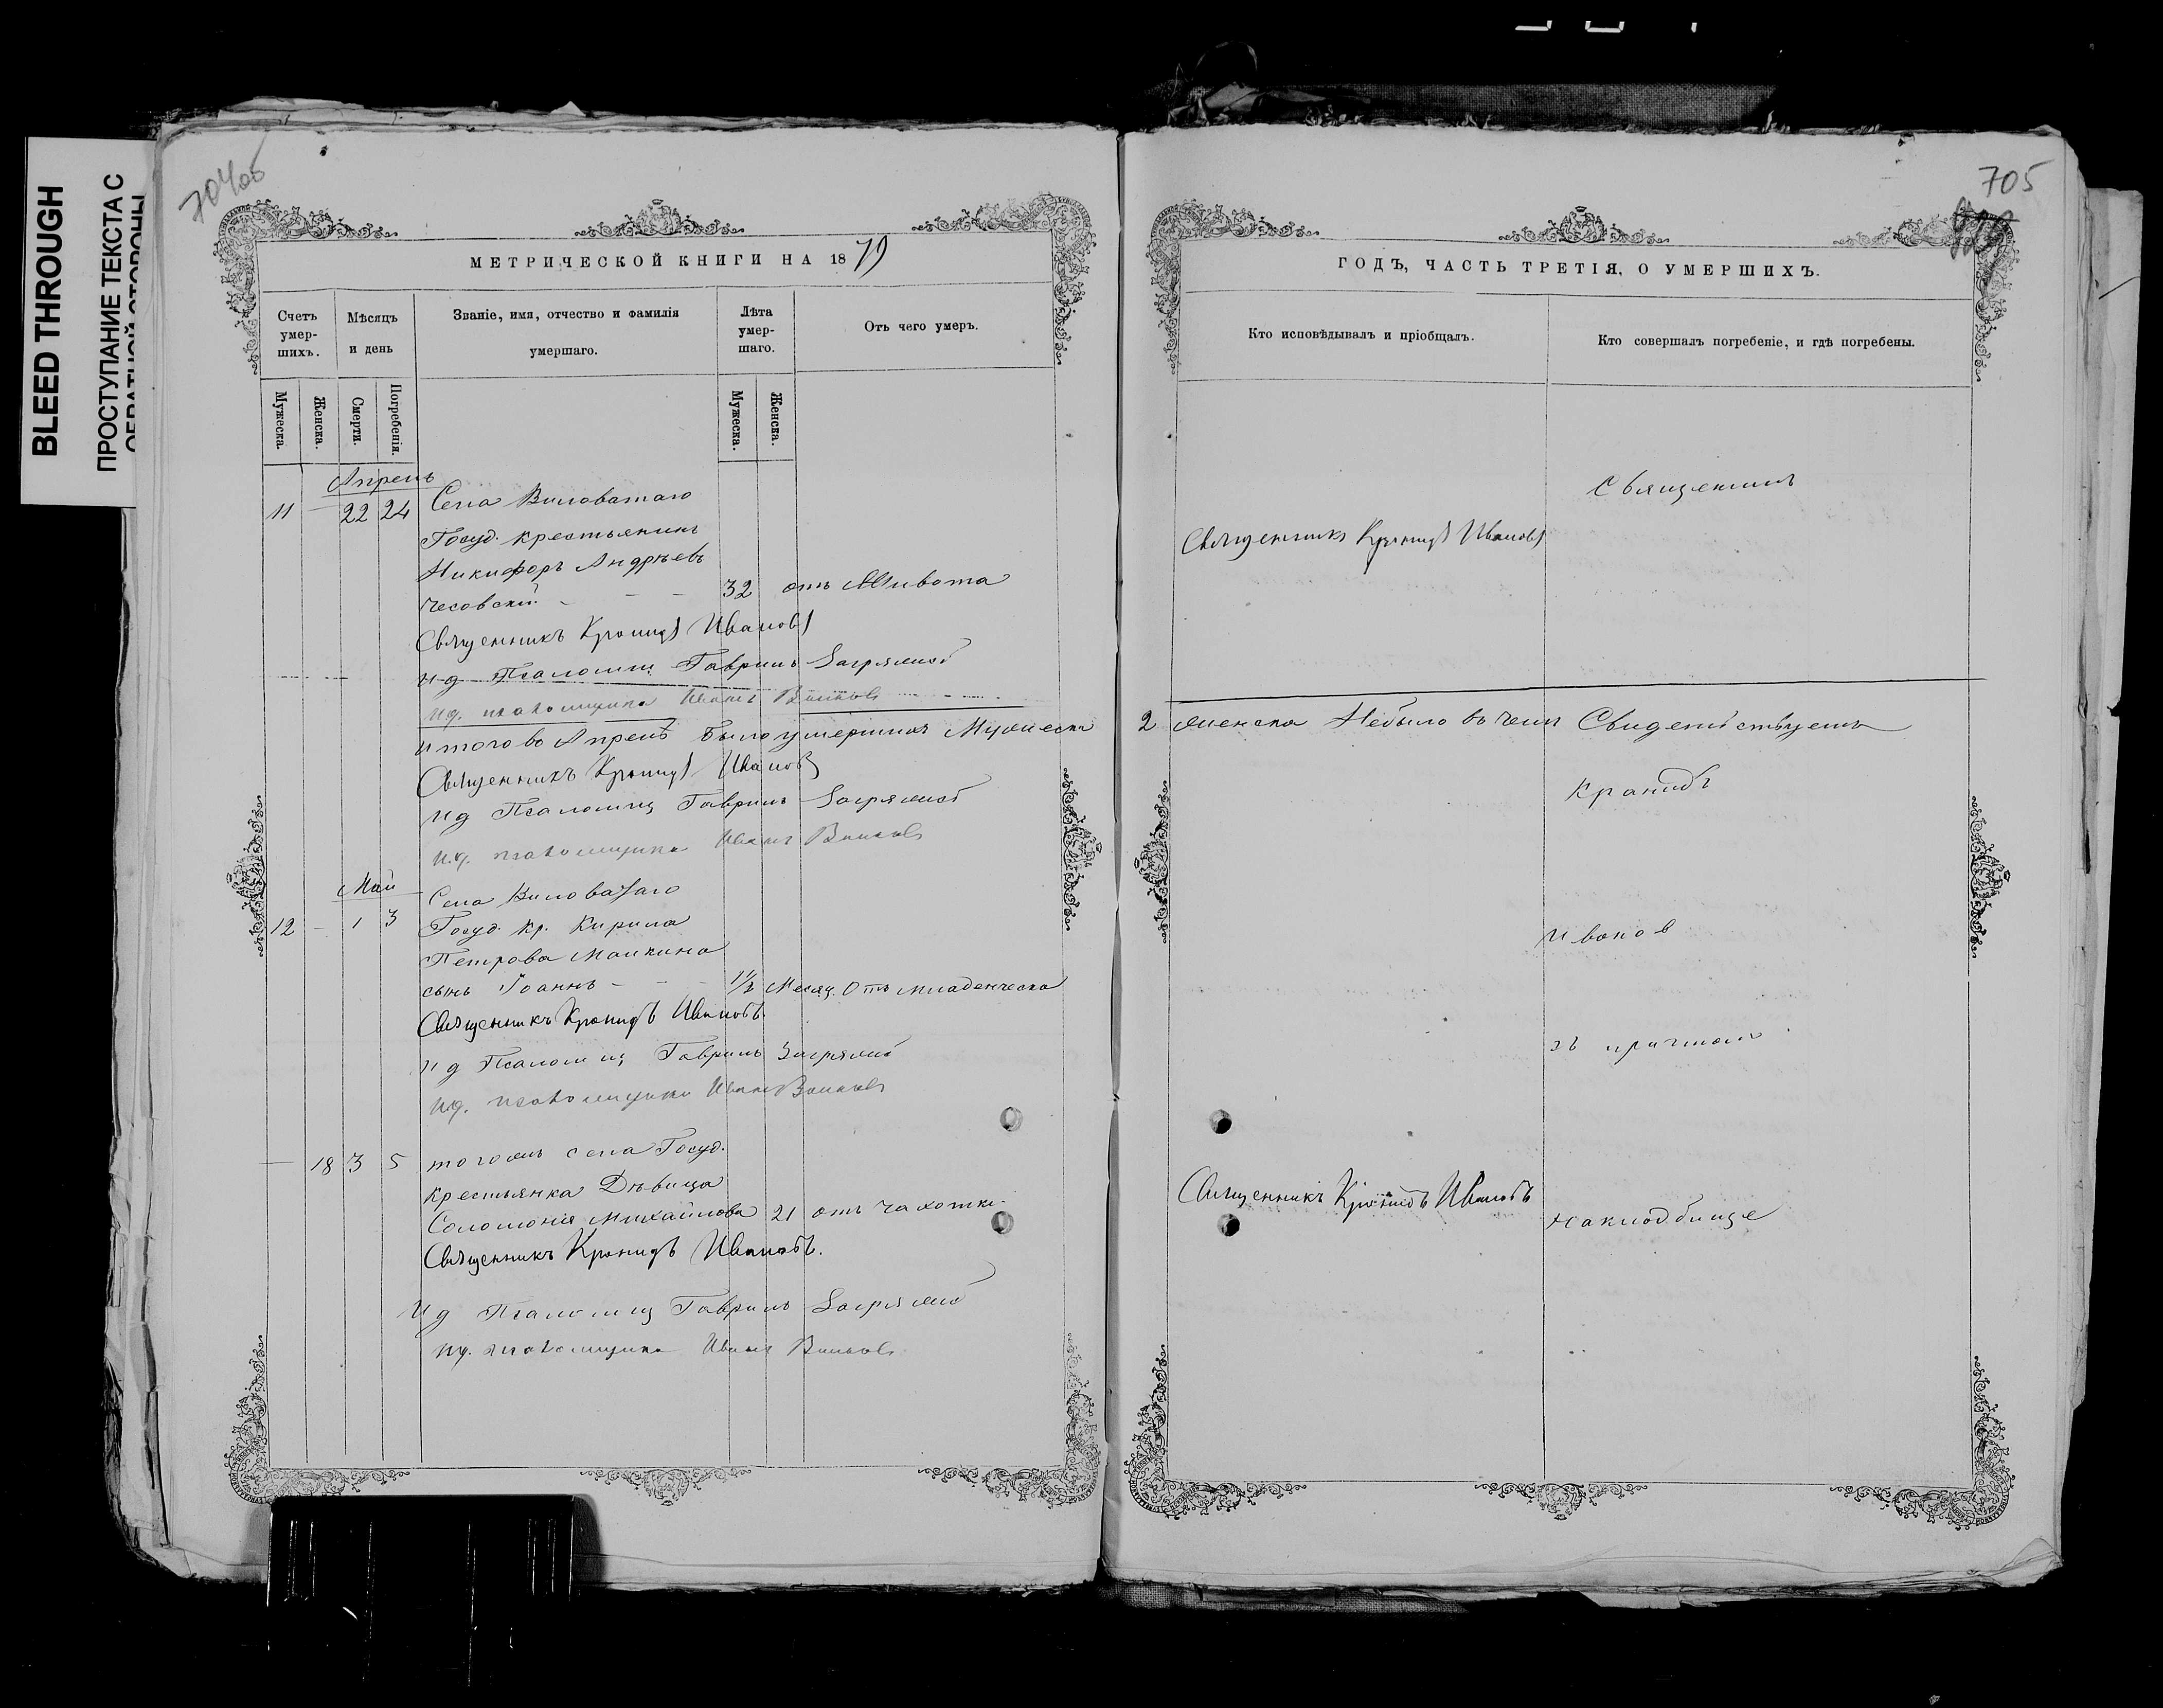 BLEED THROUGH
ПРОСТУПАНИЕ ТЕКСТА С
ОБРАТНОЙ СТОРОНЫ
МЕТРИЧЕСКОЙ КНИГИ НА 1879
Счетъ умер-шихъ.
Мѣсяцъ и день
Званіе, имя, отчество и фамилія умершаго.
Лѣта умер-шаго.
Отъ чего умеръ.
Мужеска.
Женска.
Смерти.
Погребенія.
Мужеска.
Женска.
Апрель
11 – 22 24 Села Виловатаго
Госуд. крестьянинъ
Никифоръ Андрѣевъ
Чесовскій - - - 32 отъ Живота
Священникъ Кронидъ Ивановъ
и д Псаломщ Гавриилъ
ид. псаломщика Иванъ
итого во Апрелѣ было умершихъ Мужеска
Священникъ Кронидъ Ивановъ
ид Псаломщ Гавриилъ
и.д. псаломщика Иванъ
Май
Села Виловатаго
12 – 1 3 Госуд. кр. Кирила
Петрова Маикина
сынъ Іоаннъ - - - 1½ Месяц. Отъ младенческа
Священникъ Кронидъ Ивановъ
и д Псаломщ Гавриилъ
ид. псаломщика Иванъ
— 18 3 5 тогожъ села Госуд.
крестьянка Дѣвица
Соломонія Михайлова 21 отъ чахотки
Священникъ Кронидъ Ивановъ.
ид Псаломщ Гавриилъ
ид. псаломщика Иванъ
705
ГОДЪ, ЧАСТЬ ТРЕТІЯ, О УМЕРШИХЪ.
Кто исповѣдывалъ и пріобщалъ.
Кто совершалъ погребеніе, и гдѣ погребены.
Священник
Священникъ Кронидъ Ивановъ
2 женска Небыло въ чемъ Свидетельствуемъ
Кранидъ
Иванов
зъ причтом
Священникъ Кронидъ Ивановъ
на кладбище